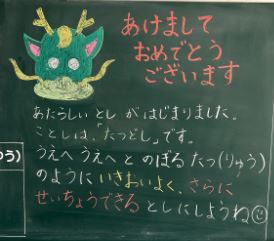 あけまして
おめでとう
ございます
あたらしい とし が はじまりました。
ことしは、「たつどし」です。
うえへ うえへ と のぼる たつ(りゅう)
のように いきおいよく、さらに
せいちょうできる としにしようね
う)